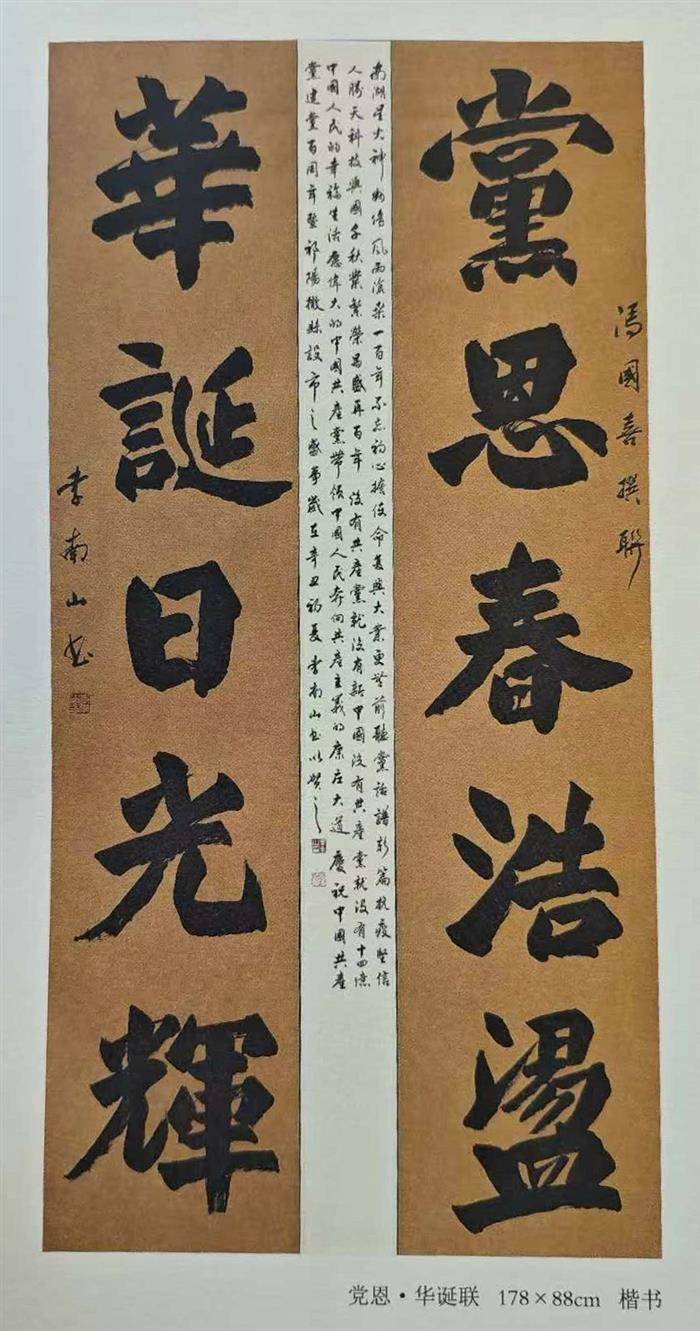 黨恩春浩盪
馮國喜撰聯
南湖星火神州傳風雨滄桑一百年不忘初心擔使命復興大業更無前聽黨話譜新篇抗疫堅信
人勝天科技興國千秋業繁榮昌盛再百年 沒有共產黨就沒有新中國沒有共產黨就沒有十四億
中國人民的幸福生活應偉大的中國共產黨帶領中國人民奔向共產主義的康莊大道 慶祝中國共產
黨建黨百周年暨祁陽撤縣設市之盛事歲在辛丑初夏 李南山書以賀之
華誕日光輝
李南山书
党恩·华诞联 178×88cm 楷书